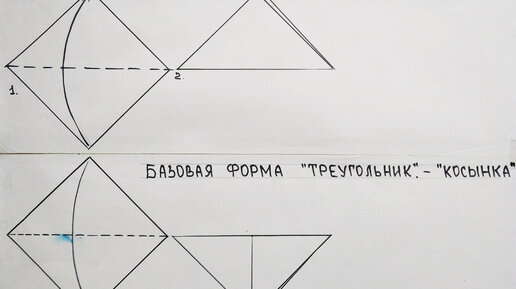 1.
2.
БАЗОВАЯ ФОРМА "ТРЕУГОЛЬНИК".-"КОСЫНКА"